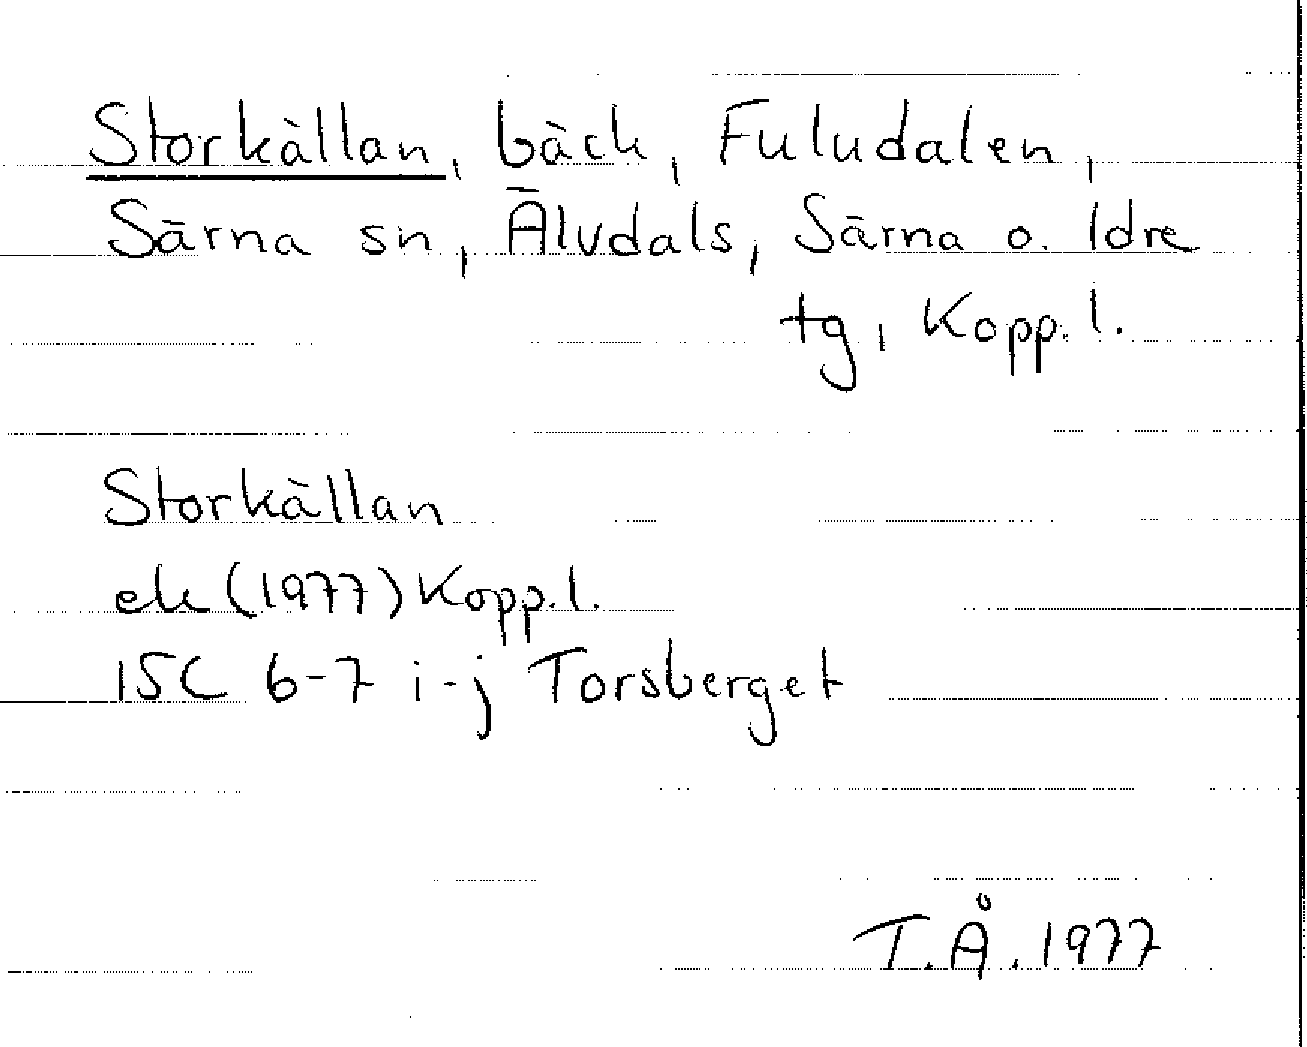 Storkällan, bäck, Fuludalen,
Särna sn, Älvdals, Särna o. Idre
tg, Kopp. l.
Storkällan
ek (1977) Kopp. l.
15C 6-7 i-j Torsberget
T.Å. 1977